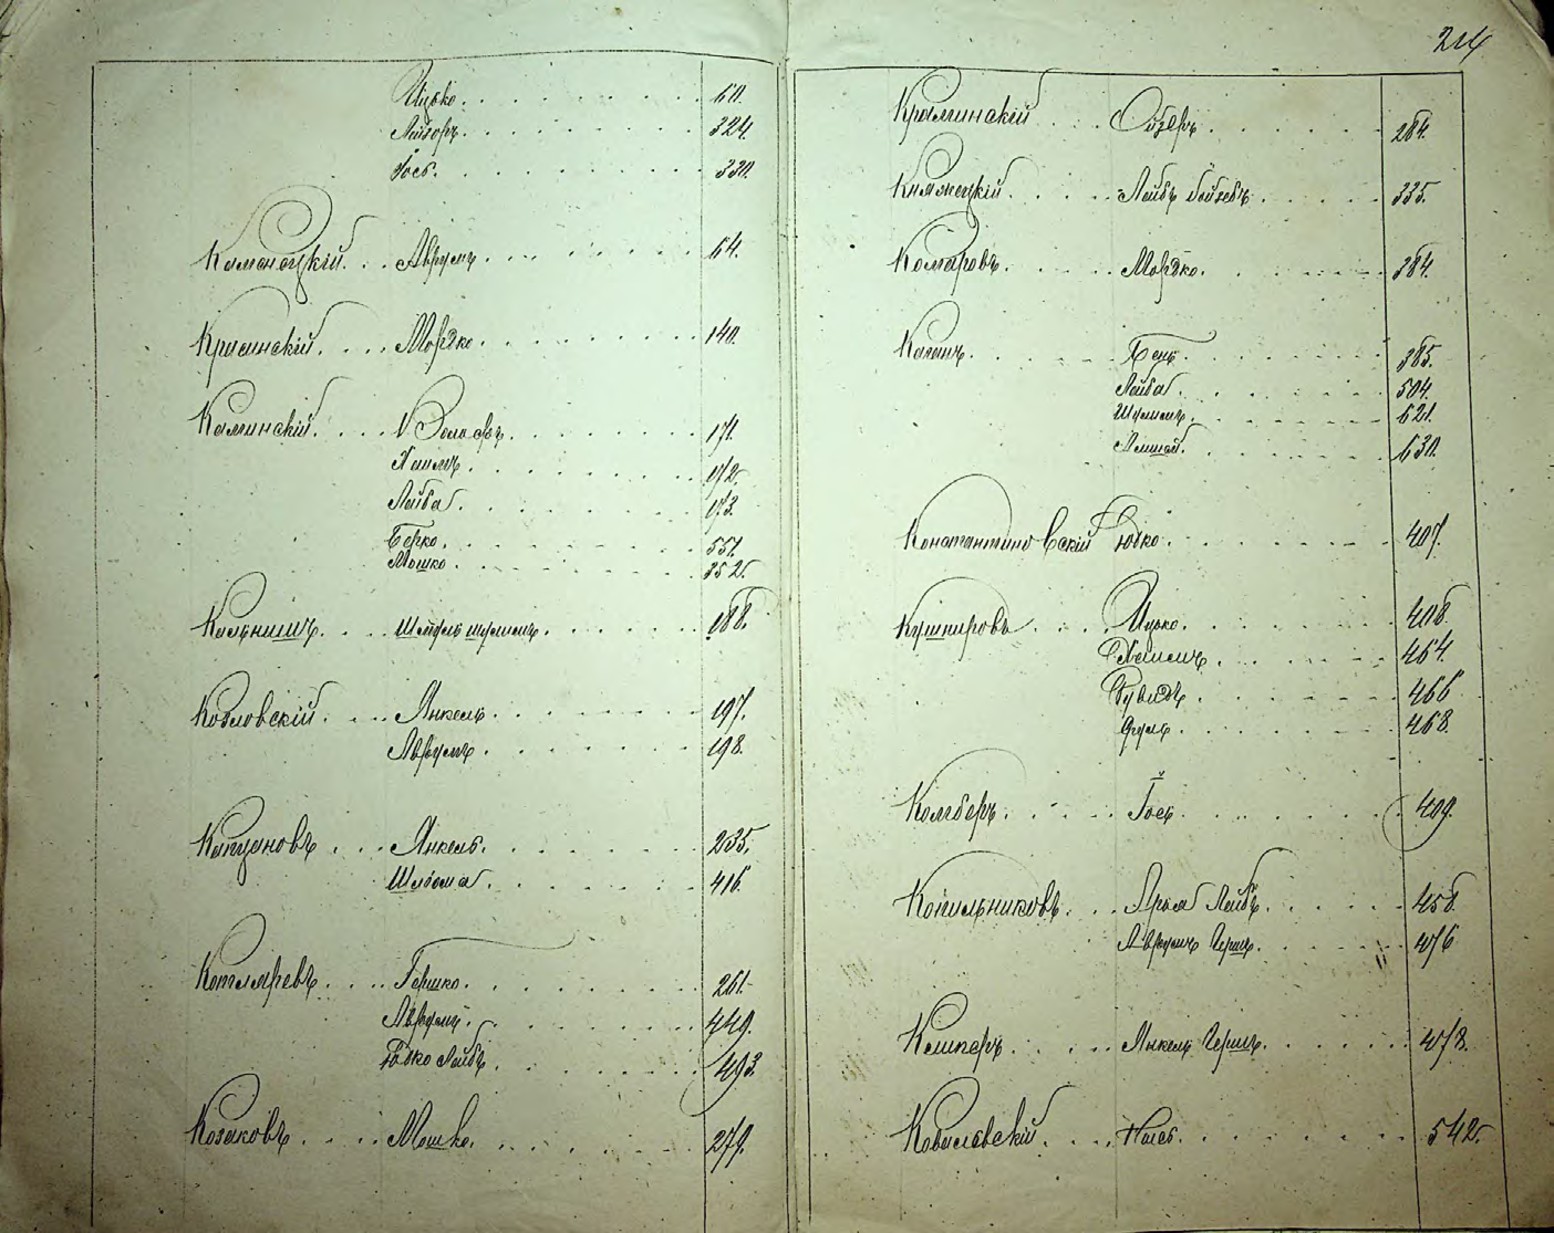 214
Ицько. 60.
Лейзоръ. 324.
Іось. 330.
Каменецкій. Аврумъ. 64.
Красинскій. Мордко. 140.
Каминскій. Вольфъ. 171.
Хаимъ. 172.
Лейба. 173.
Берко. 551.
Мошко. 352.
Кальнишъ. Шмуль 188.
Козловскій. Янкель. 197.
Аврумъ. 198.
Капцановъ. Янкель. 235.
Шлёома. 416.
Котляревъ. Гершко. 261.
Аврумъ. 449.
Юдко Лейбъ. 493.
Козаковъ. Мошко. 279.
Краминскій Ойзеръ. 284.
Княжецкій. Лейбъ 335.
Комаровъ. Мордко. 384.
Каганъ. 385.
Лейба. 504.
Шулимъ. 621.
630.
Константиновскій Юдко. 407.
Кушнировъ Ицько. 408.
Хаимъ. 464.
Рувинъ. 466
Фроимъ. 468.
Іось. 409.
Котельниковъ. Арья Лейбъ. 458.
Аврумъ Герш. 476
Янкель Герш. 478.
Ковалевскій. 542.